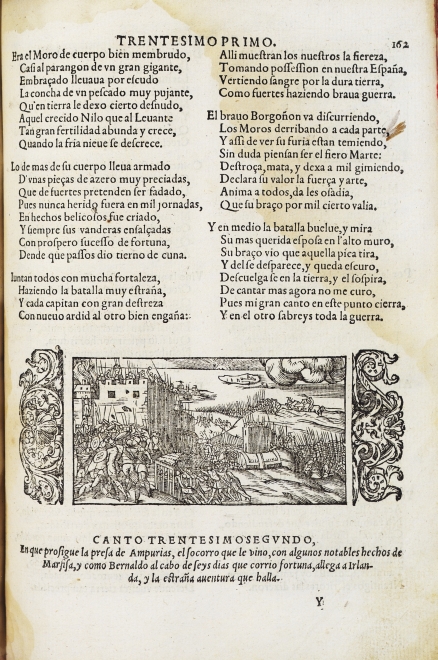 TRENTESIMO PRIMO.
162
Era el Moro de cuerpo bien membrudo,
Casi al parangon de vn gran gigante,
Embraçado lleuaua por escudo
La concha de vn pescado muy pujante,
Qu'en tierra le dexo cierto desnudo,
Aquel crecido Nilo que al Leuante
Tan gran fertilidad abunda y crece,
Quando la fria nieue se descrece.
Lo de mas de su cuerpo lleua armado
D'vnas pieças de azero muy preciadas,
Que de fuertes pretenden ser fadado,
Pues nunca herido fuera en mil jornadas,
En hechos belicosos fue criado,
Y siempre sus vanderas ensalçadas
Con prospero sucesso de fortuna,
Dende que passos dio tierno de cuna.
Iuntan todos con mucha fortaleza,
Haziendo la batalla muy estraña,
Y cada capitan con gran destreza
Con nueuo ardid al otro bien engaña:
Alli muestran los nuestros la fiereza,
Tomando possession en nuestra España,
Vertiendo sangre por la dura tierra,
Como fuertes haziendo braua guerra.
El brauo Borgoñon va discurriendo,
Los Moros derribando a cada parte,
Y assi de ver su furia estan temiendo,
Sin duda piensan ser el fiero Marte:
Destroça, mata, y dexa a mil gimiendo,
Declara su valor la fuerça y arte,
Anima a todos, da les osadia,
Que su braço por mil cierto valia.
Y en medio la batalla buelue, y mira
Su mas querida esposa en l'alto muro,
Su braço vio que aquella pica tira,
Y del se desparece, y queda escuro,
Descuelga se en la tierra, y el sospira,
De cantar mas agora no me curo,
Pues mi gran canto en este punto cierra,
Y en el otro sabreys toda la guerra.
CANTO TRENTESIMO SEGVNDO,
En que prosigue la presa de Ampurias, el socorro que le vino, con algunos notables hechos de
Marfisa, y como Bernaldo al cabo de seys dias que corrio fortuna, allega a Irlan-
da, y la estraña auentura que halla.
Y